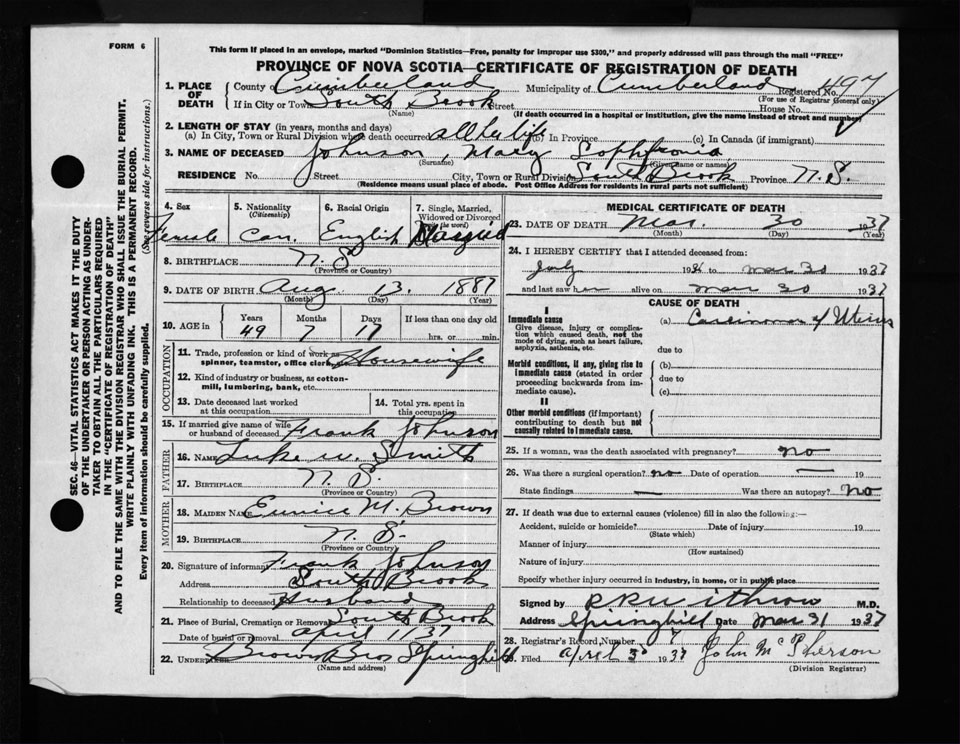 FORM 6
This form if placed in an envelope, marked "Dominion Statistics—Free, penalty for improper use $300," and properly addressed will pass through the mail "FREE"
PROVINCE OF NOVA SCOTIA—CERTIFICATE OF REGISTRATION OF DEATH
1. PLACE OF DEATH County of Cumberland Municipality of Cumberland Registered No. 497
(For use of Registrar General only)
If in City or Town South Brook Street House No.
(Name) (If death occurred in a hospital or institution, give the name instead of street and number)
2. LENGTH OF STAY (in years, months and days)
(a) In City, Town or Rural Division where death occurred all her life (b) In Province (c) In Canada (if immigrant)
3. NAME OF DECEASED Johnson, Mary Sophfronia
(Surname) (Given name or names)
RESIDENCE No. Street City, Town or Rural Division South Brook Province N.S.
(Residence means usual place of abode. Post Office Address for residents in rural parts not sufficient)
4. Sex Female
5. Nationality (Citizenship) Can.
6. Racial Origin English
7. Single, Married, Widowed or Divorced (the word) Married
8. BIRTHPLACE N.S.
(Province or Country)
9. DATE OF BIRTH Aug 13, 1887
(Month) (Day) (Year)
10. AGE in Years Months Days If less than one day old
49 7 17 hrs. or min.
OCCUPATION
11. Trade, profession or kind of work as spinner, teamster, office clerk Housewife
12. Kind of industry or business, as cotton-mill, lumbering, bank, etc.
13. Date deceased last worked at this occupation
14. Total yrs. spent in this occupation
15. If married give name of wife or husband of deceased Frank Johnson
FATHER
16. Name Luke W. Smith
17. Birthplace N.S.
(Province or Country)
MOTHER
18. Maiden Name Eunice M. Brown
19. Birthplace N.S.
(Province or Country)
20. Signature of informant Frank Johnson
Address South Brook
Relationship to deceased Husband
21. Place of Burial, Cremation or Removal South Brook
Date of burial or removal April 1, 37
22. Undertaker Brown Bros Springhill
(Name and address)
MEDICAL CERTIFICATE OF DEATH
23. DATE OF DEATH Mar. 30 1937
(Month) (Day) (Year)
24. I HEREBY CERTIFY that I attended deceased from:
July 1936 to Mar 30 1937
and last saw her alive on Mar 30 1937
CAUSE OF DEATH
I
Immediate cause (a) Carcinoma of Uterus
Give disease, injury or complication which caused death, not the mode of dying, such as heart failure, asphyxia, asthenia, etc.
due to
Morbid conditions, if any, giving rise to immediate cause (stated in order proceeding backwards from immediate cause).
(b)
due to
(c)
II
Other morbid conditions (if important) contributing to death but not causally related to immediate cause.
25. If a woman, was the death associated with pregnancy? no
26. Was there a surgical operation? no Date of operation — 19
State findings — Was there an autopsy? No
27. If death was due to external causes (violence) fill in also the following:—
Accident, suicide or homicide? Date of injury 19
(State which)
Manner of injury
(How sustained)
Nature of injury
Specify whether injury occurred in Industry, in home, or in public place
Signed by R R Withrow M.D.
Address Springhill Date Mar 31 1937
28. Registrar's Record Number 7
29. Filed April 3 1937 John McPherson
(Division Registrar)
SEC. 46—VITAL STATISTICS ACT MAKES IT THE DUTY
OF THE UNDERTAKER OR PERSON ACTING AS UNDER-
TAKER TO OBTAIN ALL THE PARTICULARS REQUIRED
IN THE "CERTIFICATE OF REGISTRATION OF DEATH"
AND TO FILE THE SAME WITH THE DIVISION REGISTRAR WHO SHALL ISSUE THE BURIAL PERMIT.
WRITE PLAINLY WITH UNFADING INK. THIS IS A PERMANENT RECORD.
Every item of information should be carefully supplied. (See reverse side for instructions.)